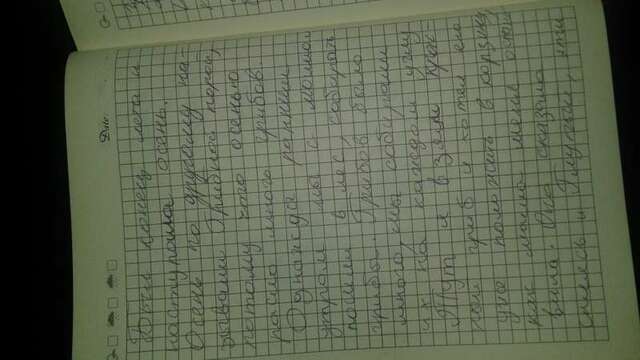 Date:
Был конец лета и
наступила осень.
Осень по другому на-
зывали Грибной порой,
потому что осенью
росло много грибов.
Однажды ранним
утром мы с мамой
пошли в лес, собирать
грибы. Грибов было
много, мы собирали
их на каждом углу
Тут я взяла крас-
ный гриб и хотел его
уже положить в корзину,
как мама меня остан
вила. Она сказала
смеясь: Глупый, эти